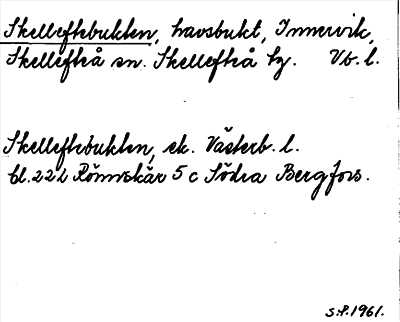 Skelleftebukten, havsbukt, Innervik,
Skellefteå sn. Skellefteå hg. Vb. l.
Skelleftebukten, ek. Västerb. l.
bl. 22 L Rönnskär 5 c Södra Bergfors.
S.P. 1961.